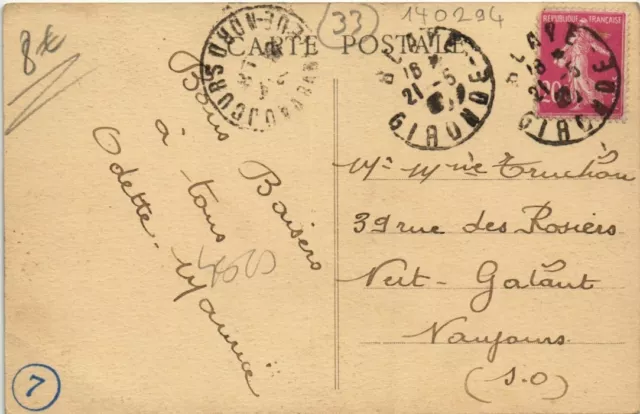 8€
33
140294
CARTE POSTALE
REPUBLIQUE FRANÇAISE
20
BLAYE
GIRONDE
18
21-5
BLAYE
GIRONDE
18
21-5
Bons Baisers
à tous
Odette-Maurice
Mr Mme Truchon
39 rue des Rosiers
Vert-Galant
Vaujours
(S.O)
7